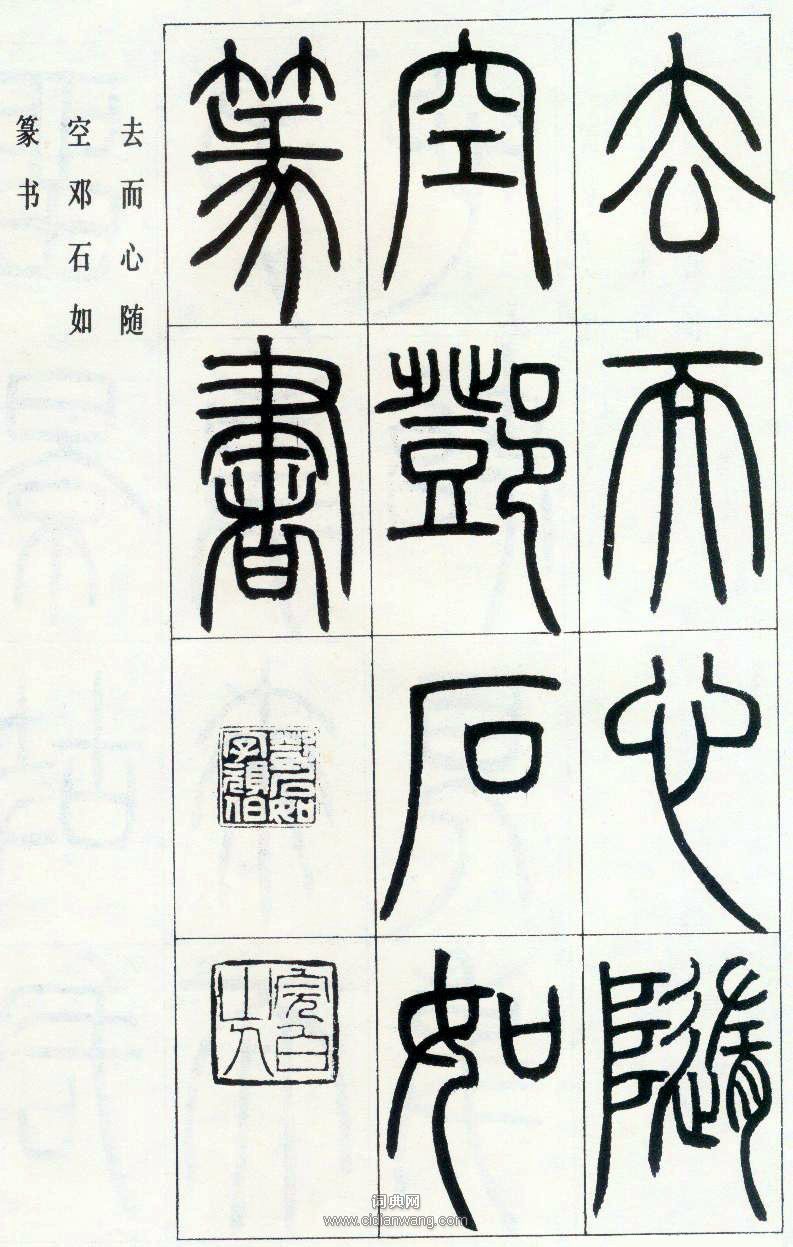 去而心隨
空鄧石如
篆書
鄧石如
字頑伯
完白
山人
去而心随
空邓石如
篆书
词典网
www.cidianwang.com